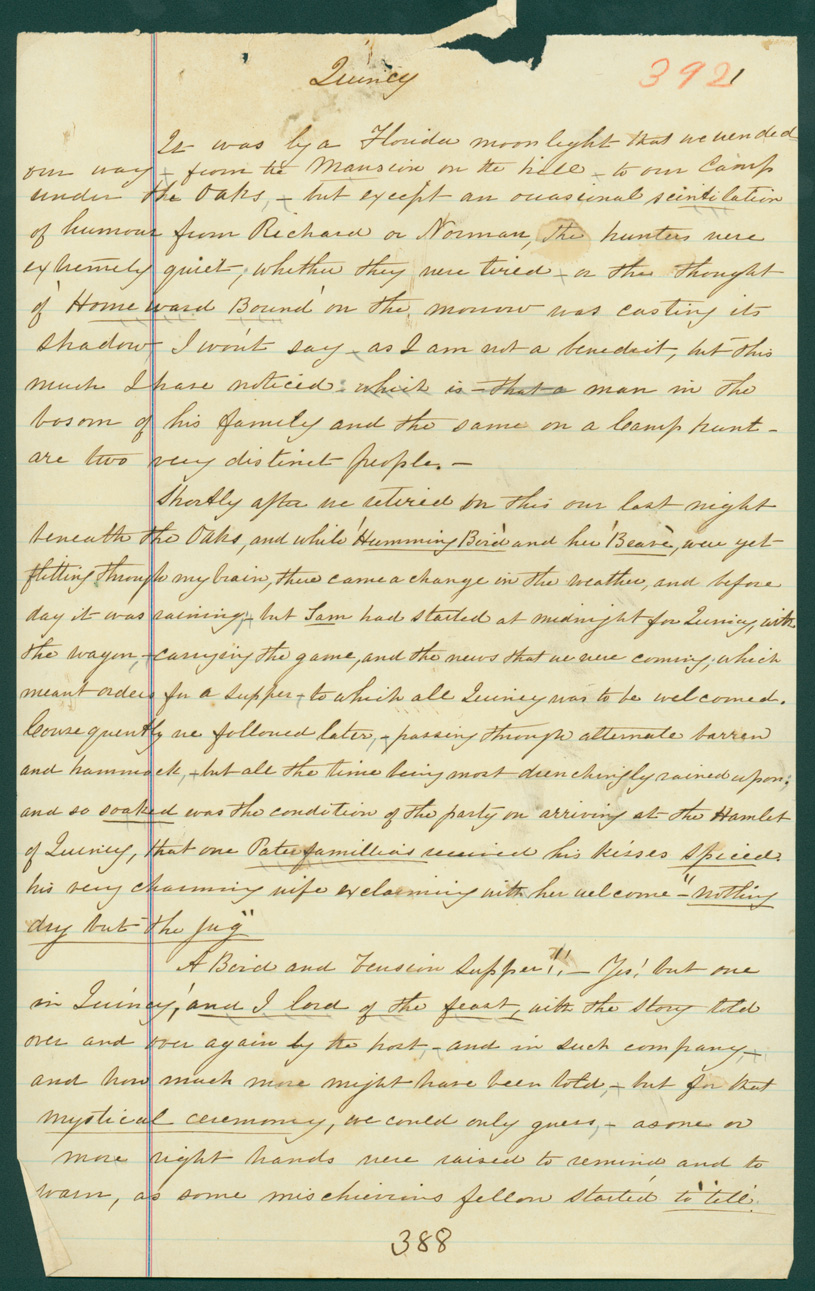 Quincy
3921
It was by a Florida moonlight that we wended
our way - from the Mansion on the hill - to our Camp
under the Oaks, - but except an occasional scintilation
of humour from Richard or Norman, the hunters were
extremely quiet, whether they were tired - or the thought
of 'Home ward Bound' on the morrow was casting its
shadow, I won't say - as I am not a benedict, but this
much I have noticed: which is - that a man in the
bosom of his family and the same on a Camp hunt -
are two very distinct people. -
Shortly after we retired on this our last night
beneath the Oaks, and while 'Humming Bird' and her 'Beare', were yet
flitting through my brain, there came a change in the weather, and before
day it was raining; but Sam had started at midnight for Quincy, with
the wagon, - carrying the game, and the news that we were coming; which
meant orders for a supper - to which all Quincy was to be welcomed.
Consequently we followed later, - passing through alternate barren
and hammock, - but all the time being most drenchingly rained upon;
and so soaked was the condition of the party on arriving at the Hamlet
of Quincy, that one Paterfamilias received his kisses spiced.
his very charming wife exclaiming with her welcome - "nothing
dry but the jug"
A Bird and Venison Supper!! - Yes! but one
in Quincy, and I lord of the feast, with the story told
over and over again by the host, - and in such company, -
and how much more might have been told, - but for that
mystical ceremony, we could only guess, - as one or
more right hands were raised to remind and to
warn, as some mischievious fellow started to 'tell'.
388